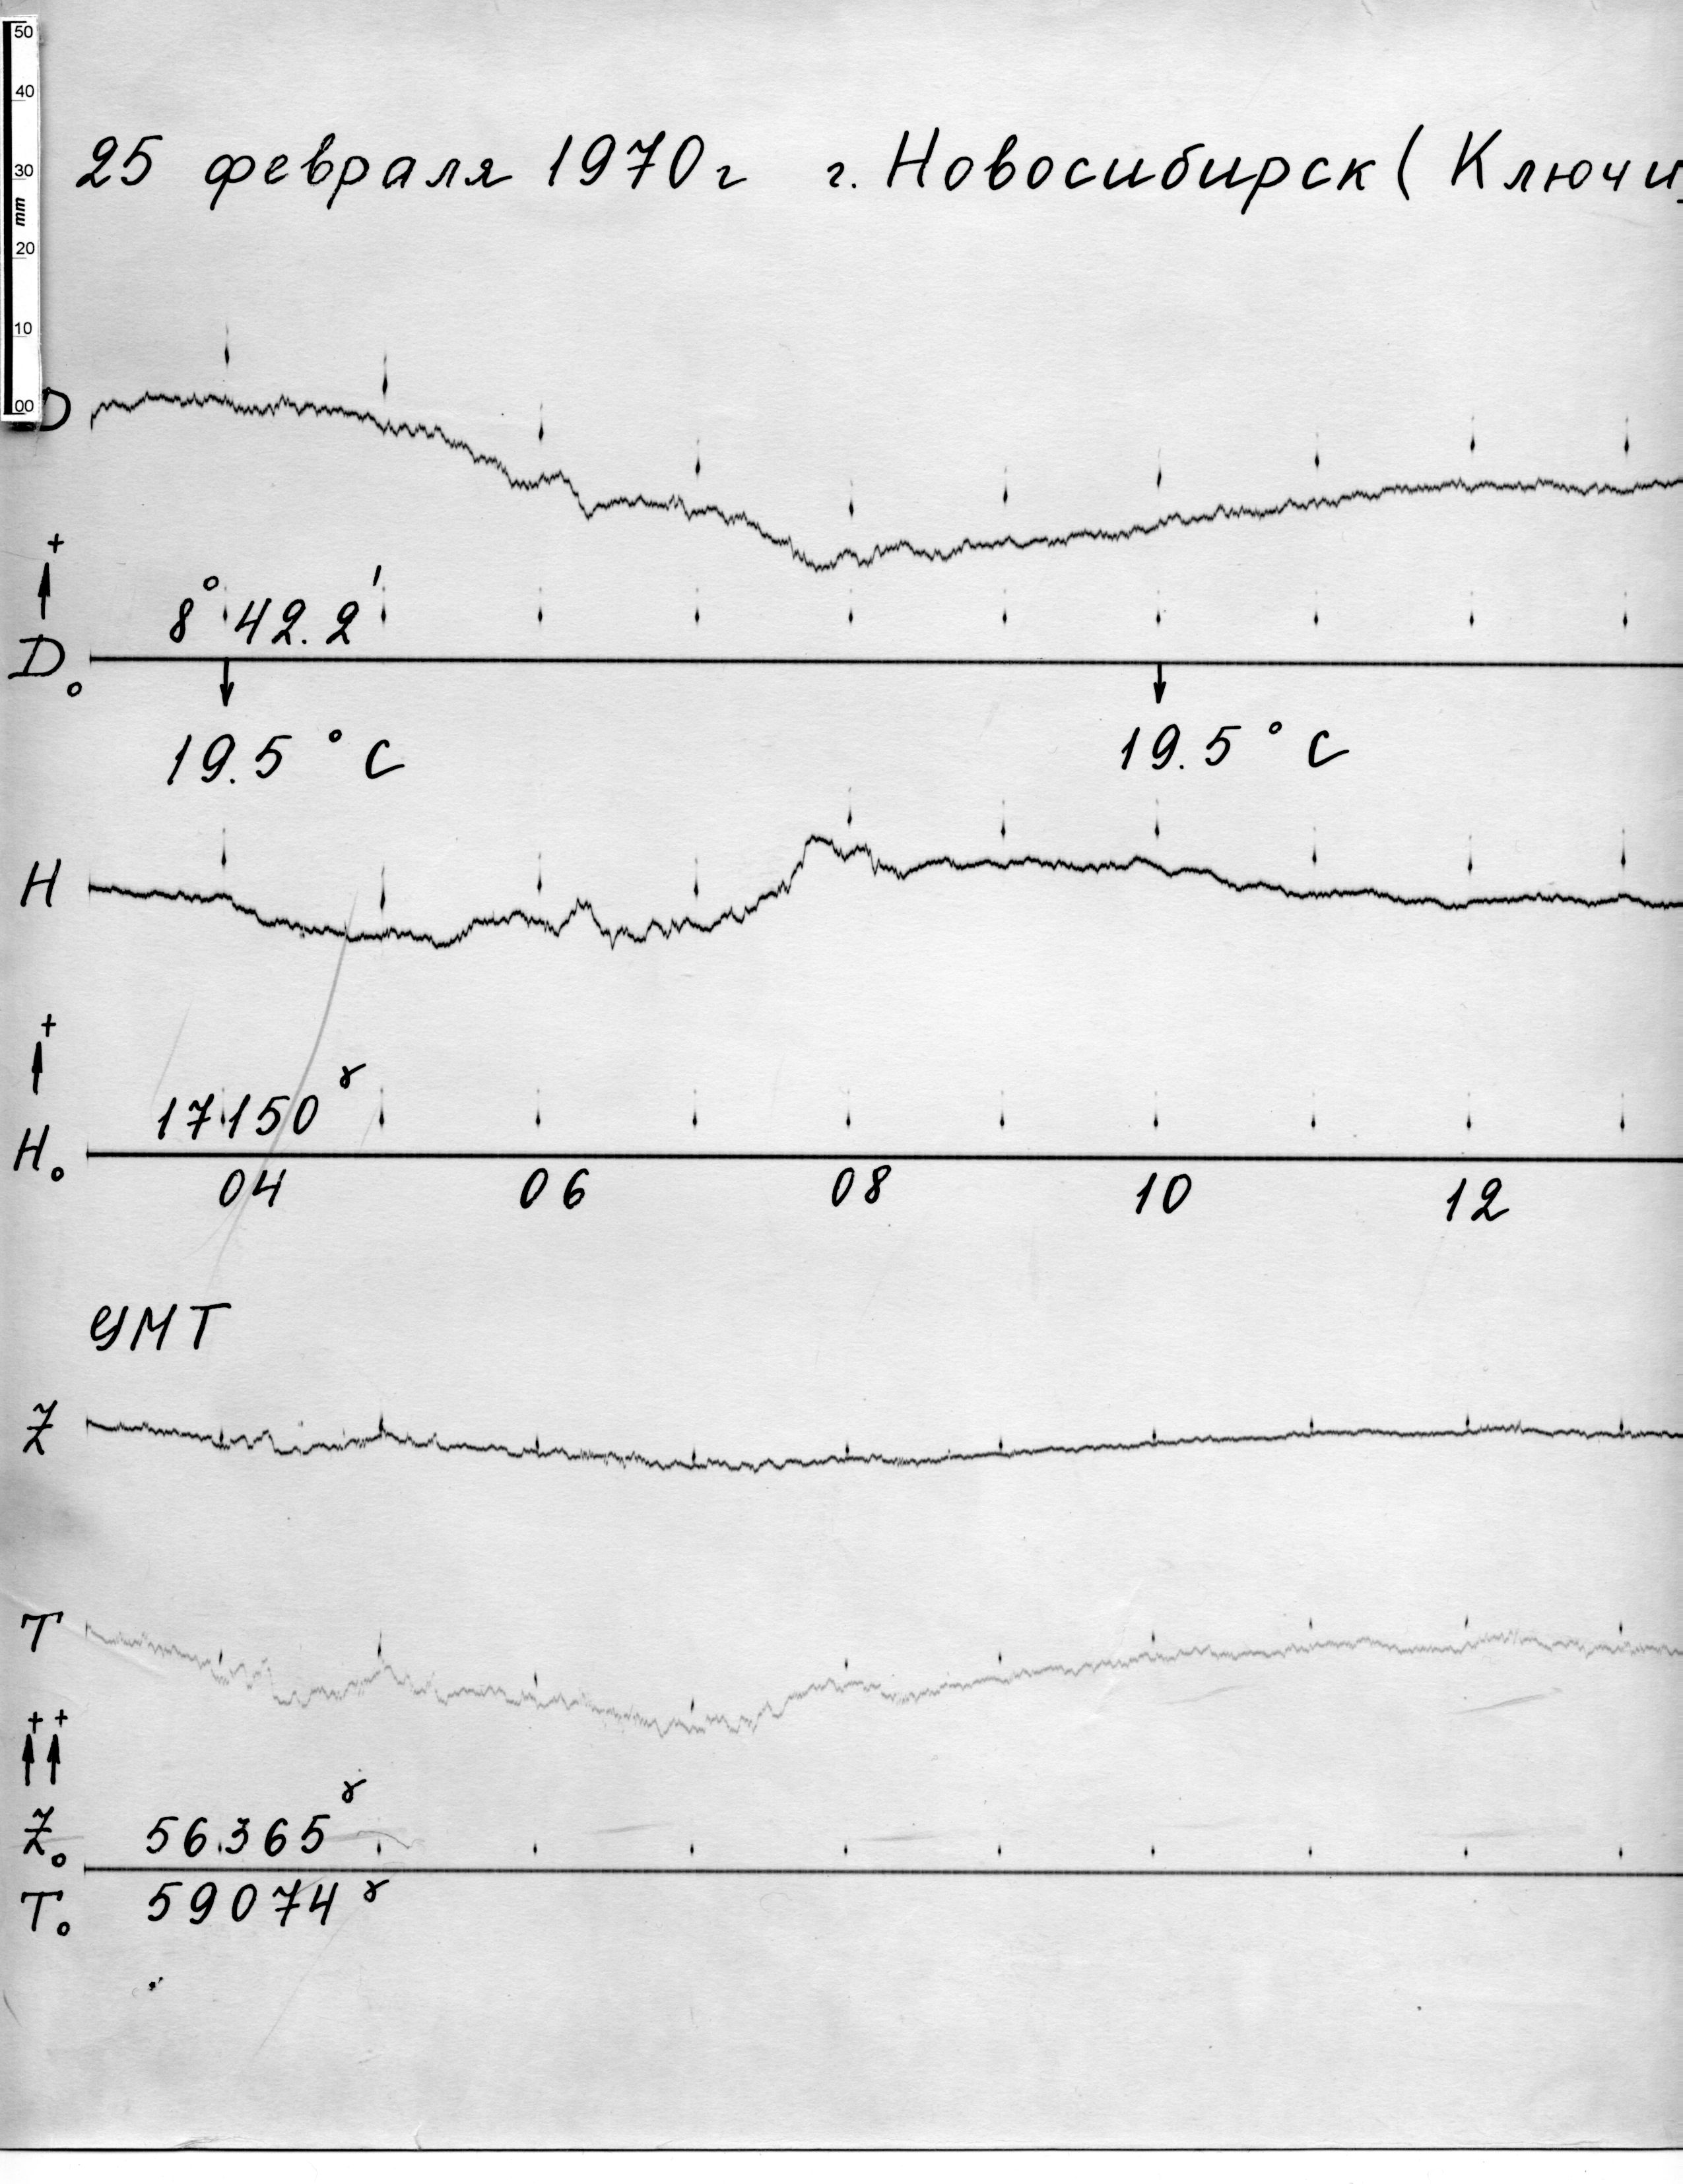 50
40
30
mm
20
10
00
25 февраля 1970г г. Новосибирск (Ключи
D
+
8° 42.2'
D₀
19.5 °C 19.5 °C
H
+
17150 γ
H₀
04 06 08 10 12
УМТ
Z
T
+ +
Z₀ 56365 γ
T₀ 59074 γ